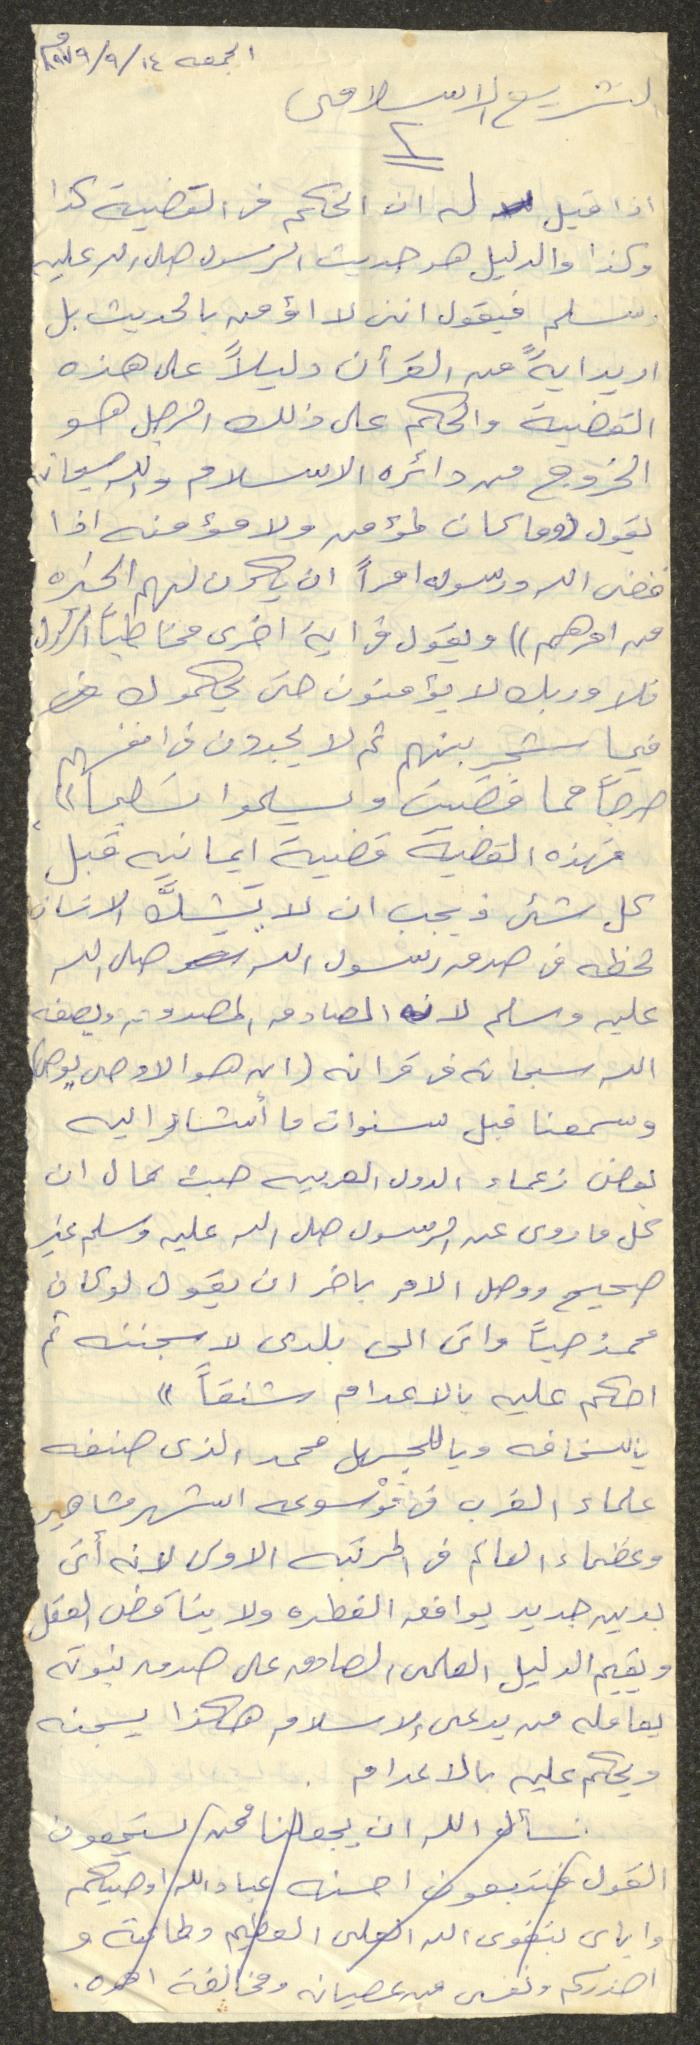 الجمعه ١٤/٩/١٩٧٩م
التشريع الاسلامي
٢
اذا قيل له ان الحكم في القضية كذا
وكذا والدليل هو حديث الرسول صلى الله عليه
وسلم فيقول انني لا اؤمن بالحديث بل
اريد ايةً من القرآن دليلاً على هذه
القضية والحكم على ذلك الرجل هو
الخروج من دائره الاسلام والله سبحانه
يقول ((وما كان لمؤمن ولا مؤمنه اذا
قضى الله ورسوله امراً ان يكون لهم الخيره
من امرهم)) ويقول في اية اخرى مخاطباً الرسول
فلا وربك لا يؤمنون حتى يحكموك
فيما شجر بينهم ثم لا يجدون في انفسهم
حرجاً مما قضيت ويسلموا تسليماً))
فهذه القضية قضية ايمانيه قبل
كل شئ فيجب ان لا يشكَّ الانسان
لحظه في صدق رسول الله صلى الله
عليه وسلم لانه الصادق المصدوق ويصفه
الله سبحانه في قرانه (ان هو الا وحى يوحى)
وسمعنا قبل سنوات ما أشار اليه
بعض زعماء الدول العربيه حيث قال ان
كل ما روى عن الرسول صلى الله عليه وسلم غير
صحيح ووصل الامر باخر ان يقول لو كان
محمدٌ حياً واتى الى بلدى لاسجننه ثم
احكم عليه بالاعدام شنقاً))
يا للسخافه ويا للجهل محمد الذى صنفه
علماء الغرب في موسوعه اشهر مشاهير
وعظماء العالم في المرتبه الاولى لانه أتى
بدين جديد يوافق الفطره ولا يناقض العقل
ويقيم الدليل العلمى الصادق على صدق نبوته
يعامله من يدعى الاسلام هكذا يسجنه
ويحكم عليه بالاعدام .
نسأل الله ان يجعلنا ممن يستمعون
القول فيتبعون احسنه عباد الله اوصيكم
واياى بتقوى الله العلى العظيم وطاعته و
احذركم ونفسى من عصيانه ومخالفة امره.